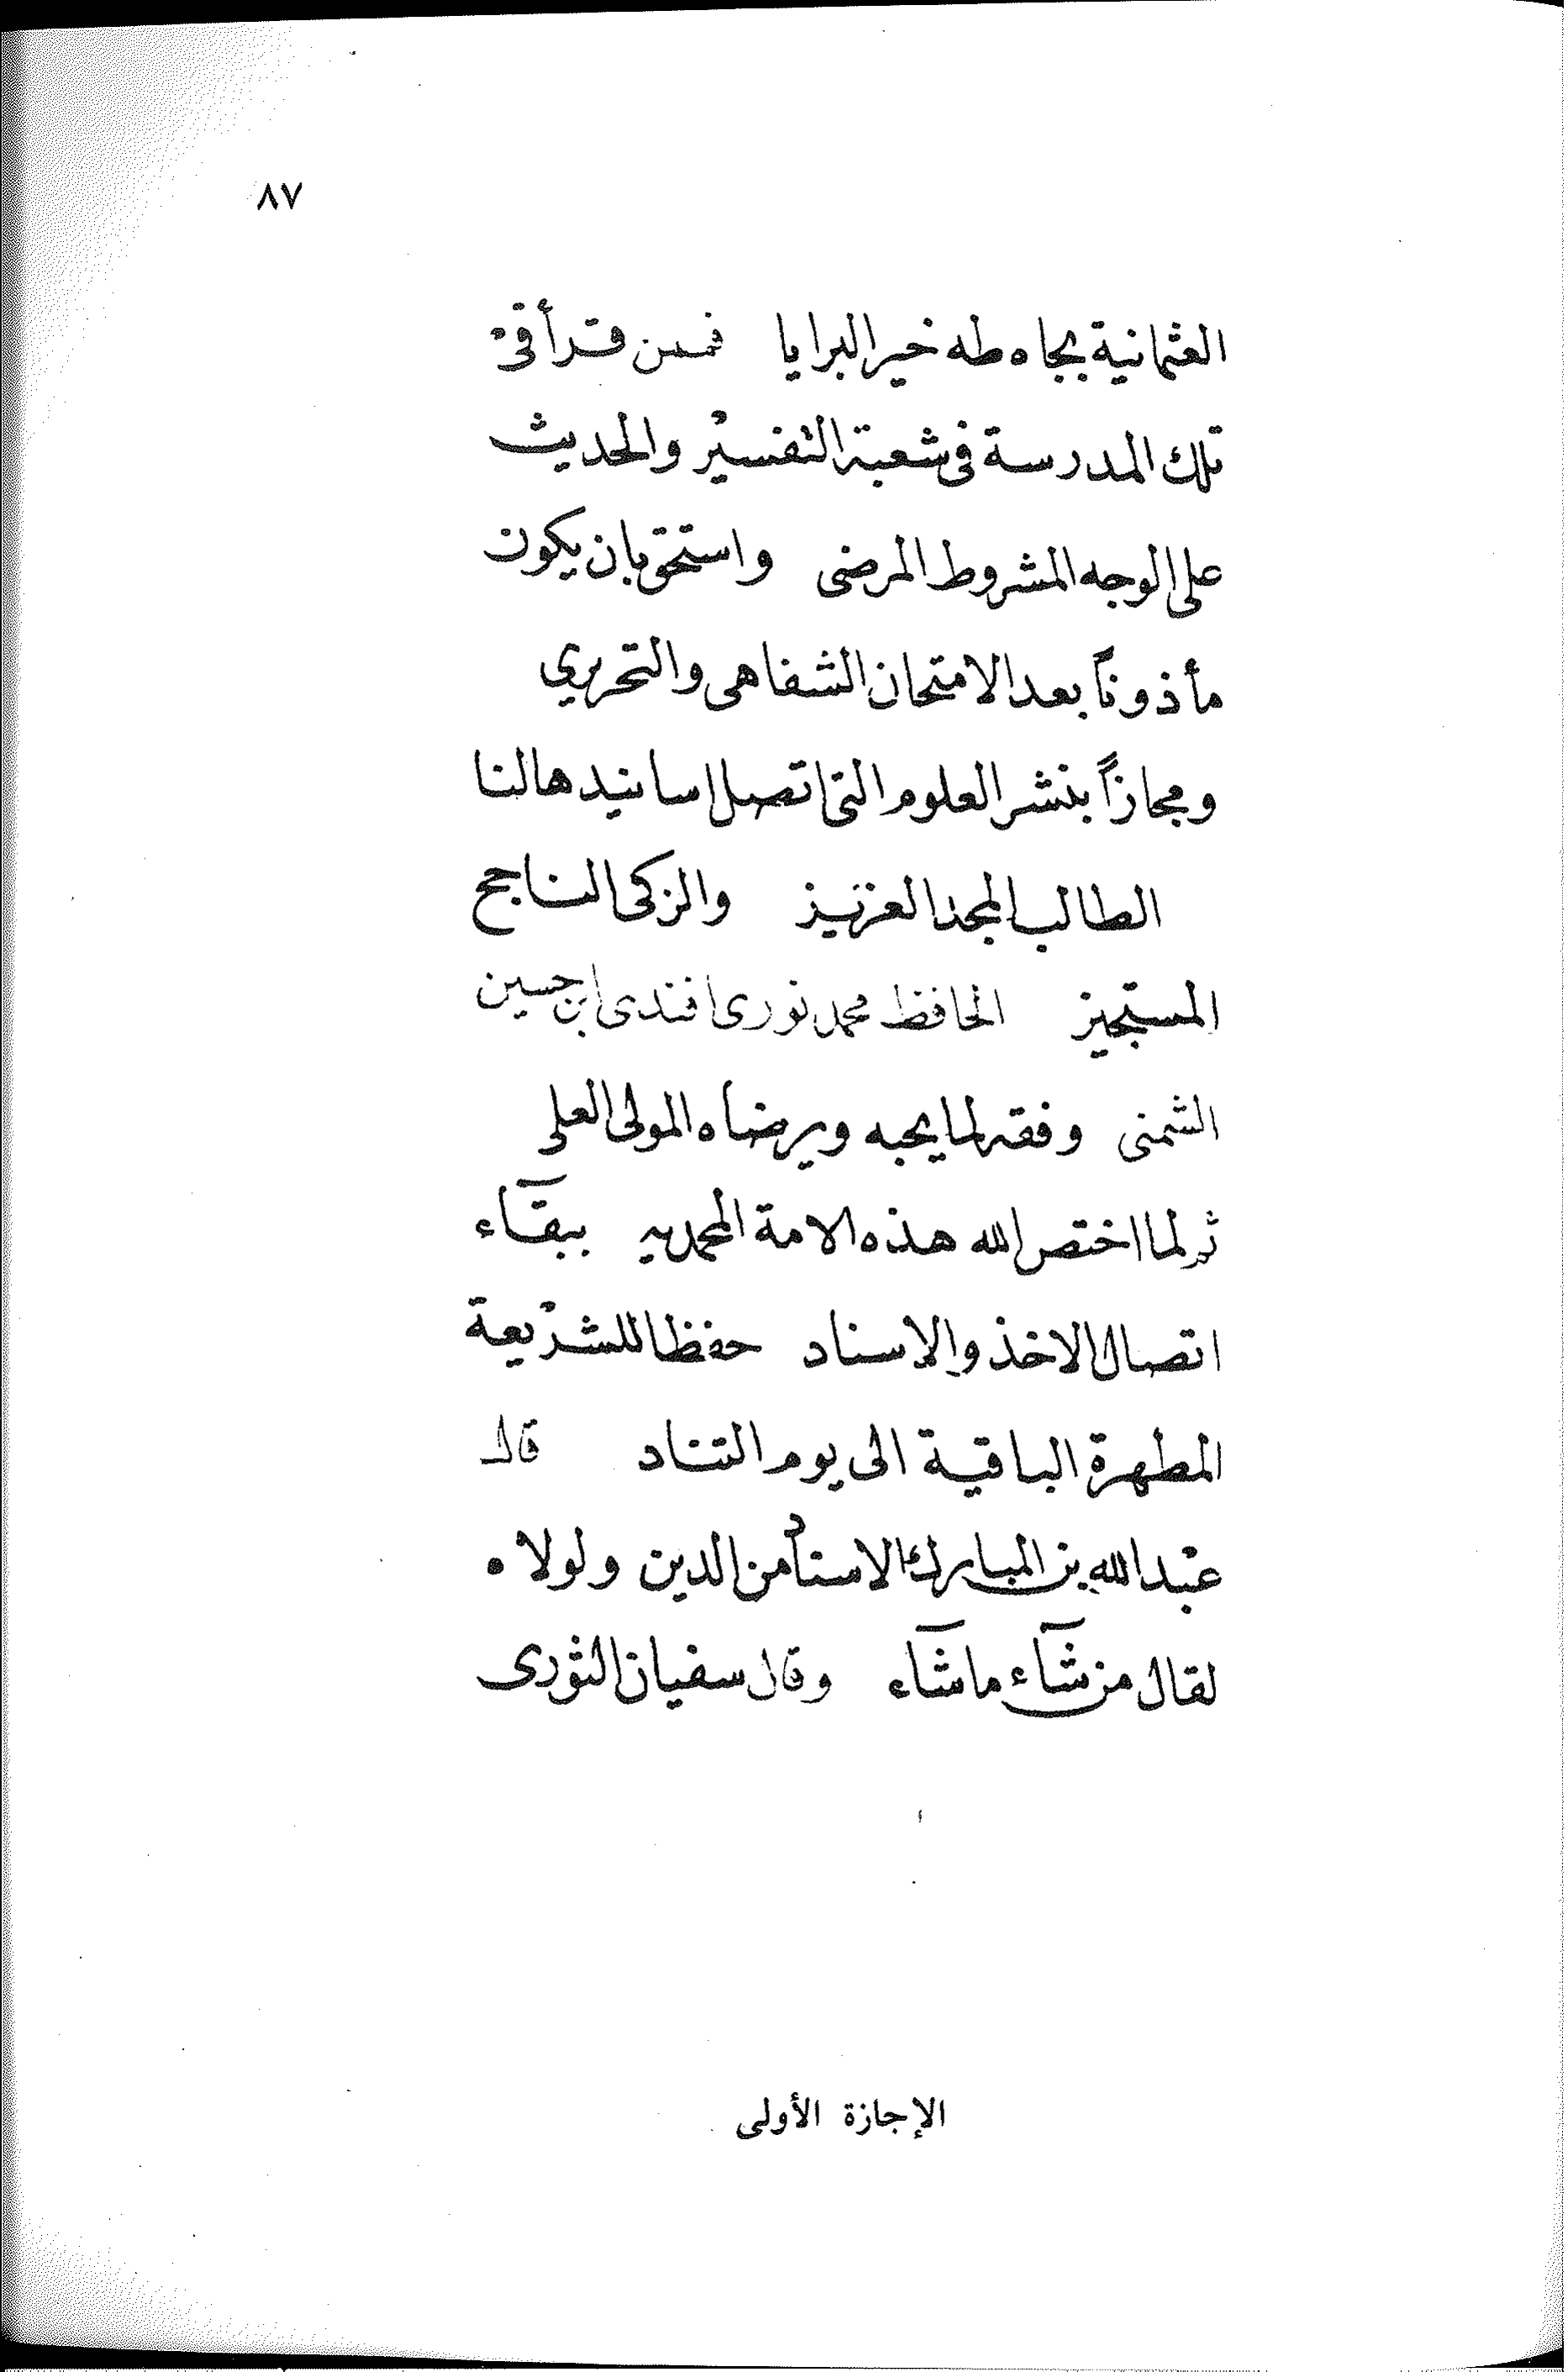 ٨٧
العثمانية بجاه طه خير البرايا فمن قرأ في
تلك المدرسة في شعبة التفسير والحديث
على الوجه المشروط المرضى واستحق بان يكون
مأذوناً بعد الامتحان الشفاهى والتحريري
ومجازاً بنشر العلوم التى اتصل اسانيدها لنا
الطالب المجد العزيز والزكى الناجح
المستجيز الحافظ محمد نورى افندى ابن حسين
الشمنى وفقه لما يحبه ويرضاه المولى العلى
ثم لما اختص الله هذه الامة المحمديه ببقآء
اتصال الاخذ والاسناد حفظا للشريعة
المطهرة الباقية الى يوم التناد قال
عبدالله بن المبارك الاسناد من الدين ولولاه
لقال من شآء ماشآء وقال سفيان الثورى
الإجازة الأولى